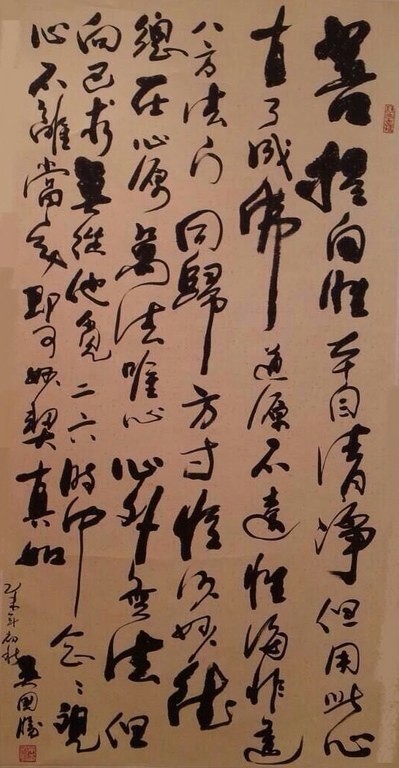 菩提自性本自清净但用此心
直了成佛道源不遠性海非遥
八方法门同歸方寸恒沙妙德
總在心源萬法唯心心外無法但
向己求無從他覓二六時中念念觀
心不離當即可妙契真如
乙未年初秋
吴國勝